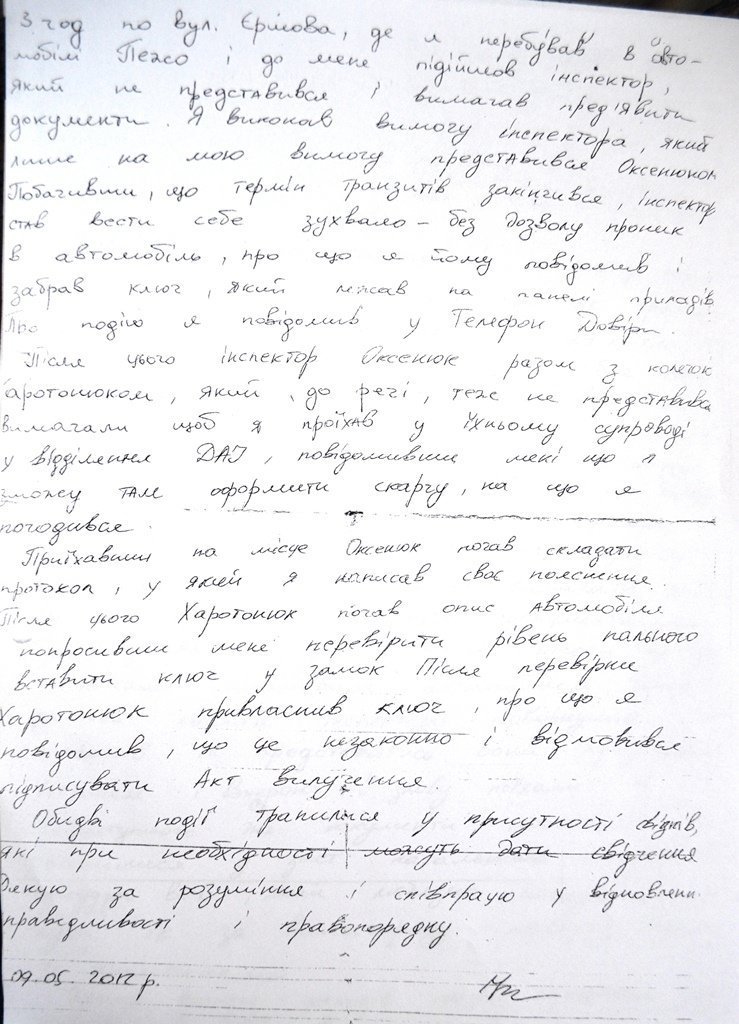 3 год по вул. Єршова, де я перебував в авто-
мобілі Пежо і до мене підійшов інспектор,
який не представився і вимагав пред'явити
документи. Я виконав вимогу інспектора, який
лише на мою вимогу представився Оксенюком
Побачивши, що термін транзитів закінчився, інспектор
став вести себе зухвало – без дозволу проник
в автомобіль, про що я йому повідомив і
забрав ключ, який лежав на панелі приладів.
Про подію я повідомив у Телефон Довіри.
Після цього інспектор Оксенюк разом з колегою
Харотонюком, який, до речі, теж не представився
вимагали щоб я проїхав у їхньому супроводі
у відділення ДАІ, повідомивши мені що я
зможу там оформити скаргу, на що я
погодився.
Приїхавши на місце Оксенюк почав складати
протокол, у якій я написав своє пояснення.
Після цього Харотонюк почав опис автомобіля
попросивши мене перевірити рівень пального
вставити ключ у замок Після перевірки
Харотонюк привласнив ключ, про що я
повідомив, що це незаконно і відмовився
підписувати Акт вилучення.
Обидві події трапилися у присутності свідків,
які при необхідності можуть дати свідчення
Дякую за розуміння і співпрацю у відновленні
справедливості і правопорядку.
09.05.2012 р.